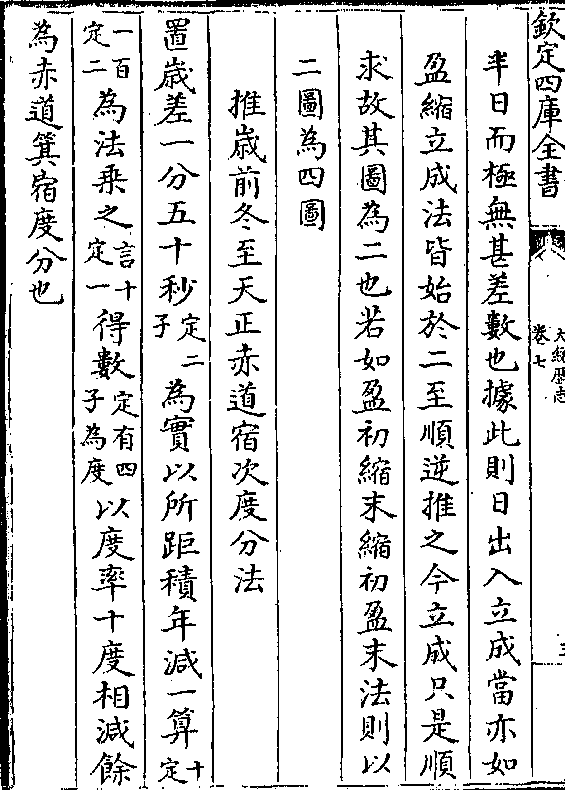 欽定四庫全書
大統歷志
卷七
半日而極無甚差數也據此則日出入立成當亦如
盈縮立成法皆始於二至順逆推之今立成只是順
求故其圖為二也若如盈初縮末縮初盈末法則以
二圖為四圖
推歳前冬至天正赤道宿次度分法
置歳差一分五十秒定二子為實以所距積年減一算定十
一百定二為法乗之言十定一得數定有四子為度以度率十度相減餘
為赤道箕宿度分也